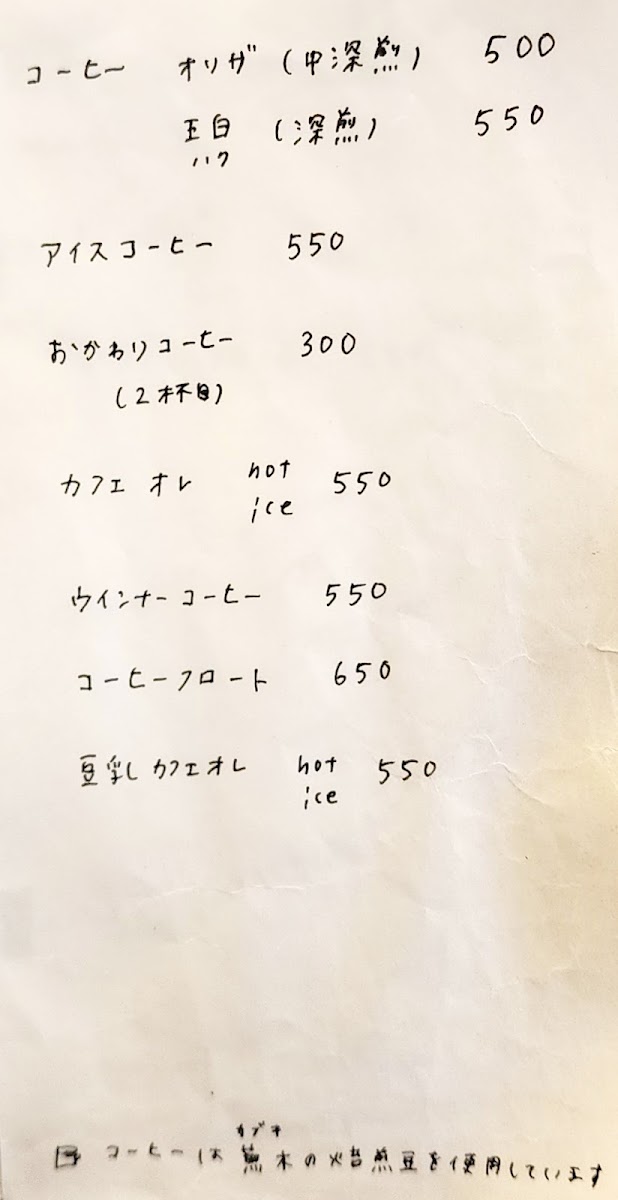 コーヒー オリザ (中深煎) 500
珀 (深煎) 550
ハク
アイスコーヒー 550
おかわりコーヒー 300
(2杯目)
カフェ オレ hot 550
ice
ウインナーコーヒー 550
コーヒーフロート 650
豆乳カフェオレ hot 550
ice
カブキ
コーヒーは蕪木の焙煎豆を使用しています